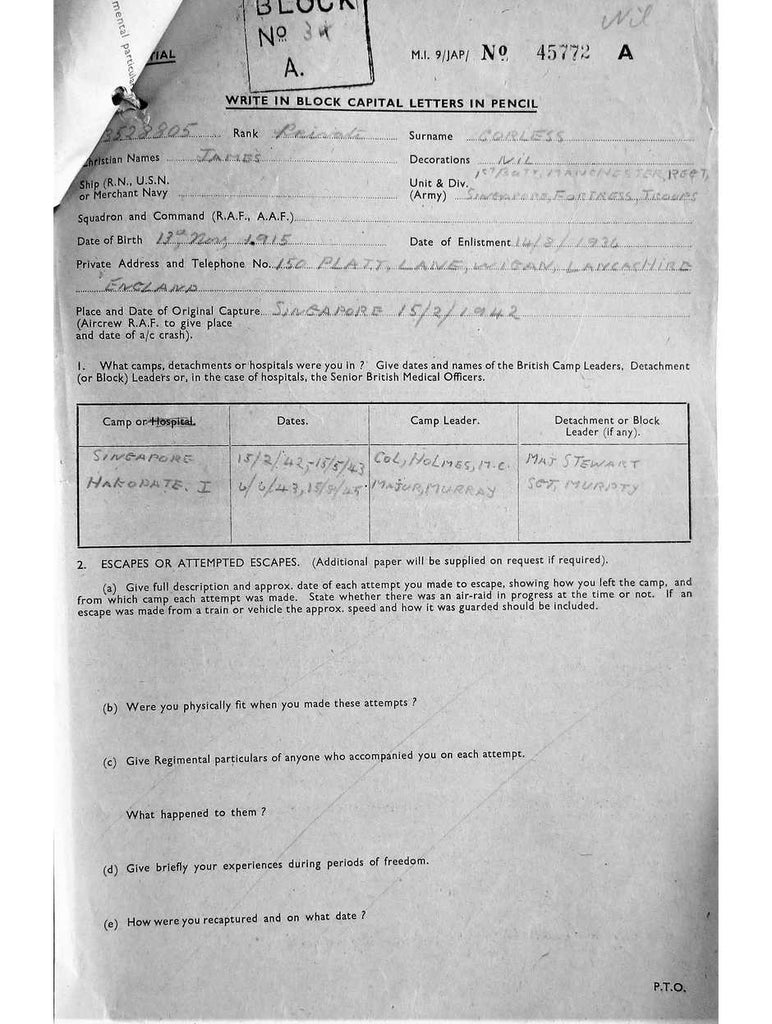 mental particula
TIAL
BLOCK
Nº 3
A.
Nil
M.I. 9/JAP/ Nº 45772 A
WRITE IN BLOCK CAPITAL LETTERS IN PENCIL
3528805 Rank Private Surname CORLESS
Christian Names JAMES Decorations NIL
Ship (R.N., U.S.N. or Merchant Navy
Unit & Div. (Army) 1ST BATT, MANCHESTER, REGT, SINGAPORE, FORTRESS, TROOPS
Squadron and Command (R.A.F., A.A.F.)
Date of Birth 13th Nov, 1915 Date of Enlistment 14/8/1936
Private Address and Telephone No. 150 PLATT, LANE, WIGAN, LANCACHIRE
ENGLAND
Place and Date of Original Capture SINGAPORE 15/2/1942
(Aircrew R.A.F. to give place
and date of a/c crash).
1. What camps, detachments or hospitals were you in ? Give dates and names of the British Camp Leaders, Detachment
(or Block) Leaders or, in the case of hospitals, the Senior British Medical Officers.
Camp or Hospital. Dates. Camp Leader. Detachment or Block Leader (if any).
SINGAPORE 15/2/42,-15/5/43 COL, HOLMES, M.C. MAJ STEWART
HAKODATE. I 6/6/43, 15/8/45 MAJOR, MURRAY SGT, MURPTY
2. ESCAPES OR ATTEMPTED ESCAPES. (Additional paper will be supplied on request if required).
(a) Give full description and approx. date of each attempt you made to escape, showing how you left the camp, and
from which camp each attempt was made. State whether there was an air-raid in progress at the time or not. If an
escape was made from a train or vehicle the approx. speed and how it was guarded should be included.
(b) Were you physically fit when you made these attempts ?
(c) Give Regimental particulars of anyone who accompanied you on each attempt.
What happened to them ?
(d) Give briefly your experiences during periods of freedom.
(e) How were you recaptured and on what date ?
P.T.O.